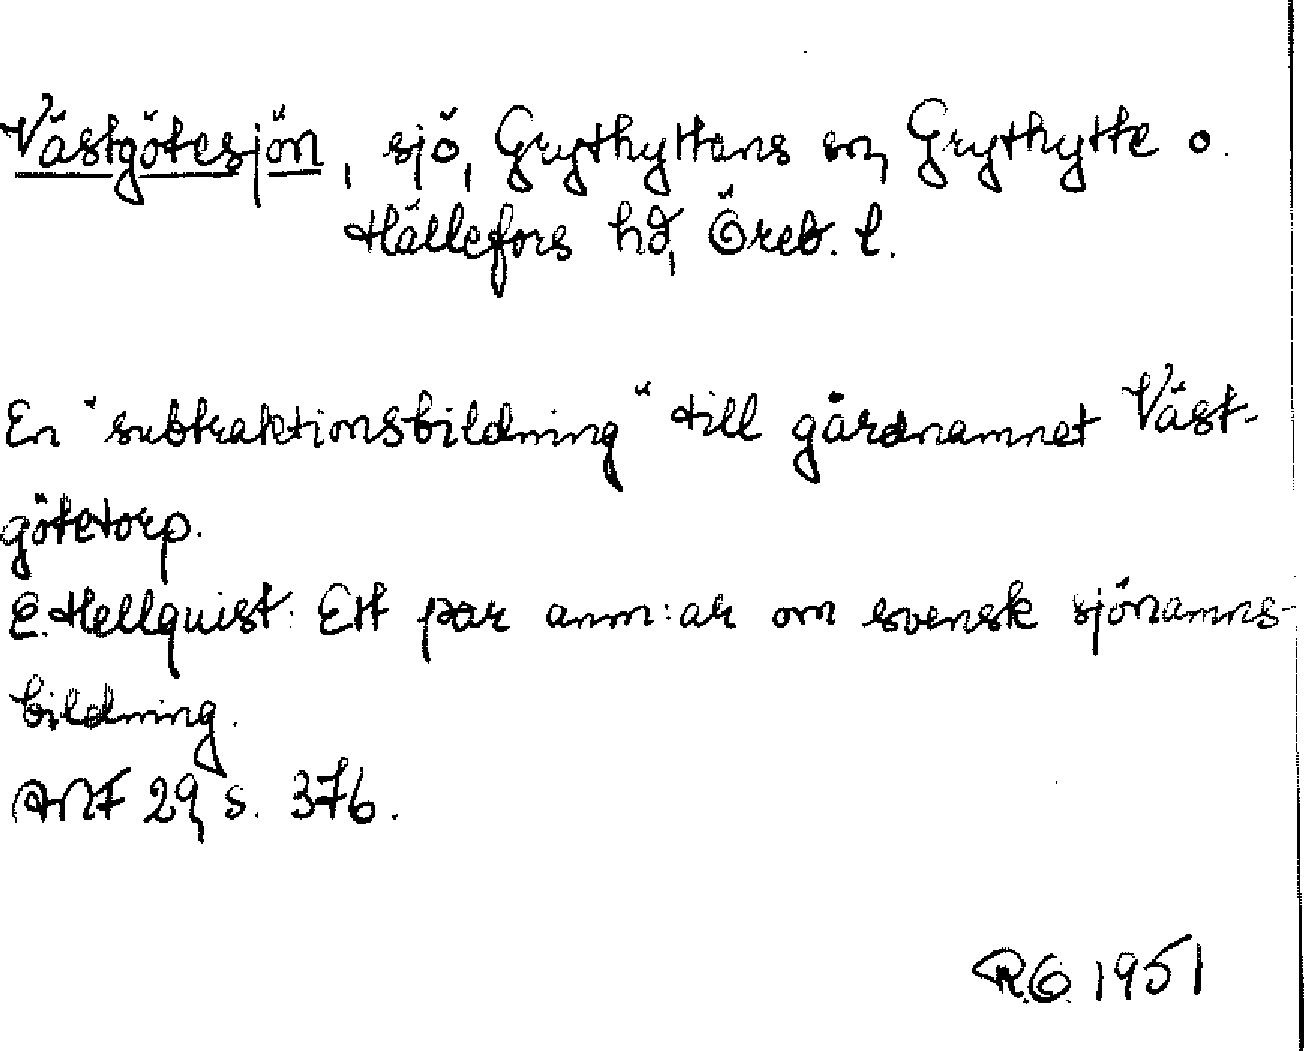 Västgötesjön, sjö, Grythyttans sn, Grythytte o.
Hällefors hd, Öreb. l.
En "subtraktionsbildning" till gårdnamnet Väst-
götetorp.
E. Hellquist: Ett par anm:ar om svensk sjönamns-
bildning.
ANF 29, s. 376.
R.G. 1951